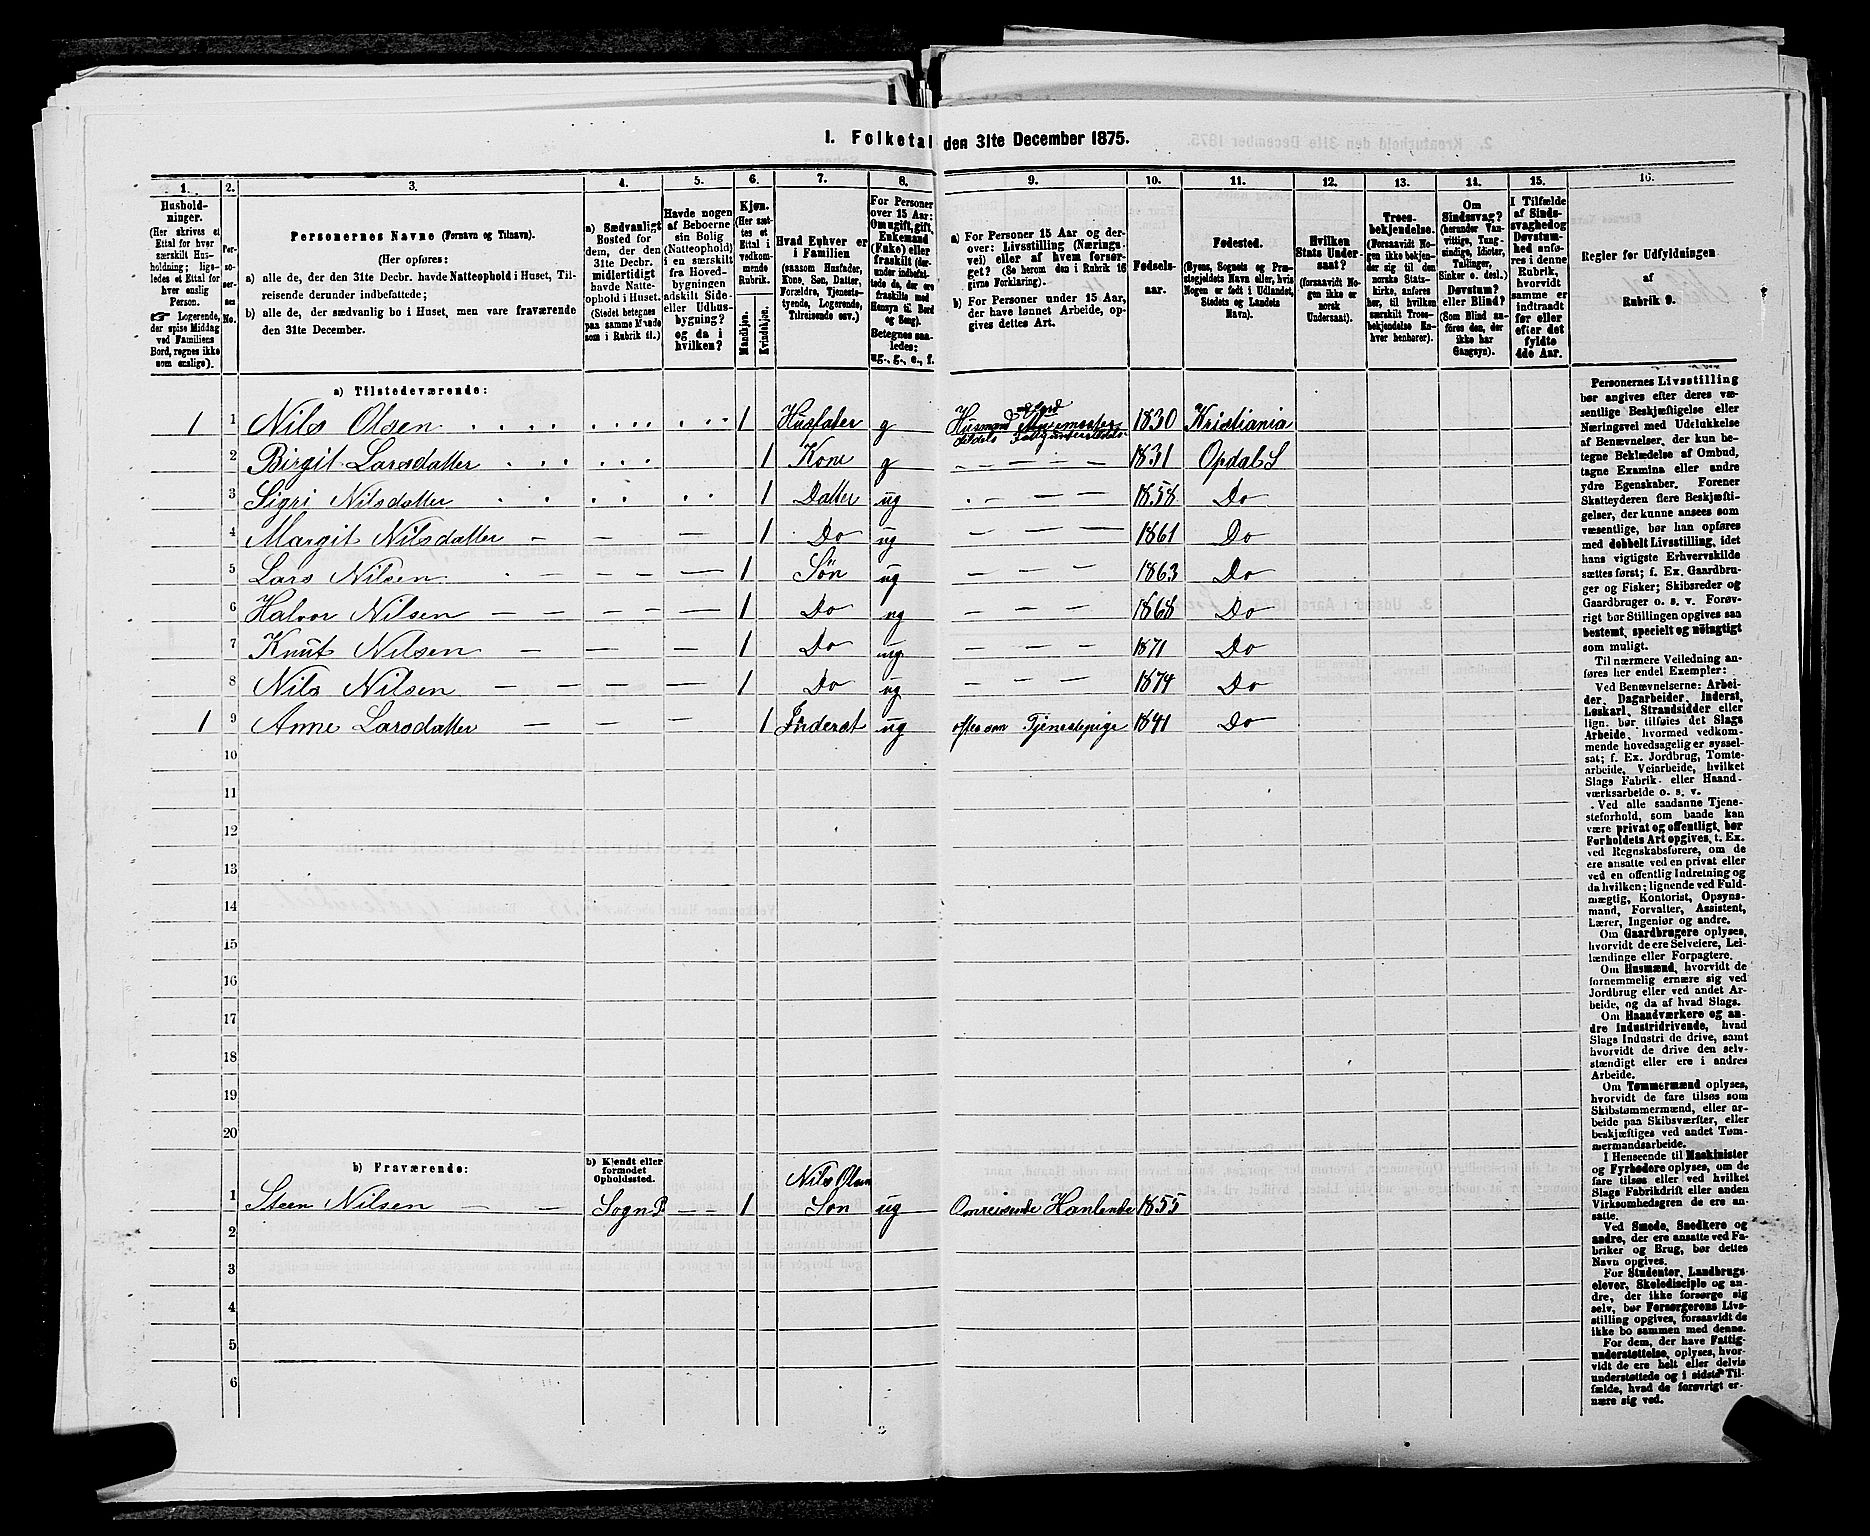 I. Folketal den 31te December 1875.
1. 2. 3. 4. 5. 6. 7. 8. 9. 10. 11. 12. 13. 14. 15. 16.
Husholdninger.
(Her skrives et Ettal for hver særskilt Husholdning; ligeledes et Ettal for hver enslig Person.
☞ Logerende, der spise Middag ved Familiens Bord, regnes ikke som enslige).
Personernes No.
Personernes Navne (Fornavn og Tilnavn).
(Her opføres:
a) alle de, der den 31te Decbr. havde Natteophold i Huset, Tilreisende derunder indbefattede;
b) alle de, der sædvanlig bo i Huset, men vare fraværende den 31te December.
a) Sædvanligt Bosted for dem, der den 31te Decbr. midlertidigt havde Natteophold i Huset.
(Stedet betegnes paa samme Maade som i Rubrik 11.)
Havde nogen af Beboerne sin Bolig (Natteophold) i en særskilt fra Hovedbygningen adskilt Side- eller Udhusbygning? og da i hvilken?
Kjøn.
(Her sættes et Ettal i vedkommende Rubrik.
Mandkjøn.
Kvindekjøn.
Hvad Enhver er i Familien
(saasom Husfader, Kone, Søn, Datter, Forældre, Tjenestetyende, Logerende, Tilreisende osv.)
For Personer over 15 Aar: Om ugift, gift, Enkemand (Enke) eller fraskilt (derunder indbefattede da, der ere fraskilte med Hensyn til Bord og Seng).
Betegnes saaledes:
ug., g., e., f.
a) For Personer 15 Aar og derover: Livsstilling (Næringsvei) eller af hvem forsørget? (Se herom den i Rubrik 16 givne Forklaring).
b) For Personer under 15 Aar, der have lønnet Arbeide, opgives dettes Art.
Fødselsaar.
Fødested.
(Byens, Sognets og Præstegjeldets Navn eller, hvis Nogen er født i Udlandet, Stedets og Landets Navn).
Hvilken Stats Undersaat?
(forsaavidt Nogen ikke er norsk Undersaat).
Troesbekjendelse.
(Forsaavidt Nogen ikke bekjender sig til den norske Statskirke, anføres her, til hvilken særskilt Troesbekjendelse Enhver henhører).
Om Sindssvag? (herunder Vanvittige, Tungsindige, Idioter, Tullinger, Sinker o. desl.) Døvstum? eller Blind?
(Som Blind anføres den, der ikke har Gangsyn).
I Tilfælde af Sindssvaghed og Døvstumhed anføres i denne Rubrik, hvorvidt samme er indtraadt før eller efter det fyldte 4de Aar.
Regler for Udfyldningen af Rubrik 9.
a) Tilstedeværende:
1 1 Nils Olsen 1 Husfader g Husmand 1830 Kristiania
2 Birgit Larsdatter 1 Kone g 1831 Opdal S
3 Sigri Nilsdatter 1 Datter ug 1858 Do
4 Margit Nilsdatter 1 Do ug 1861 Do
5 Lars Nilsen 1 Søn ug 1863 Do
6 Halvor Nilsen 1 Do ug 1868 Do
7 Knut Nilsen 1 Do ug 1871 Do
8 Nils Nilsen 1 Do ug 1874 Do
1 9 Anne Larsdatter 1 Inderst ug ofte som Tjenestepige 1841 Do
10
11
12
13
14
15
16
17
18
19
20
b) Fraværende:
b) Kjendt eller formodet Opholdssted.
1 Steen Nilsen Sogn P 1 Nils Olsen Søn ug Omreisende Handlende 1855
2
3
4
5
6
Personernes Livsstilling
bør angives efter deres væ-
sentlige Beskjæftigelse eller
Næringsvei med Udelukkelse
af Benævnelser, der kun be-
tegne Beklædelse af Ombud,
tagne Examina eller andre
ydre Egenskaber. Forener
Skatteyderen flere Beskjæfti-
gelser, der kunne ansees som
væsentlige, bør han opføres
med dobbelt Livsstilling, idet
hans vigtigste Erhvervskilde
sættes først; f. Ex. Gaardbru-
ger og Fisker; Skibsreder og
Gaardbruger o. s. v. Forøv-
rigt bør Stillingen opgives saa
bestemt, specielt og nöiagtigt
som muligt.
Til nærmere Veiledning an-
føres her endel Exempler:
Ved Benævnelserne: Arbei-
der, Dagarbeider, Inderst,
Løskarl, Strandsidder eller
lign. bør tilføies det Slags
Arbeide, hvormed vedkom-
mende hovedsagelig er syssel-
sat; f. Ex. Jordbrug, Tomte-
arbeide, Veiarbeide, hvilket
Slags Fabrik- eller Haand-
værksarbeide o. s. v.
Ved alle saadanne Tjene-
steforhold, som baade kan
være privat og offentligt, bør
Forholdets Art opgives, t. Ex.
ved Regnskabsførere, om de
ere ansatte ved en privat eller
ved en offentlig Indretning og
da hvilken; lignende ved Fuld-
mægtig, Kontorist, Opsyns-
mand, Forvalter, Assistent,
Lærer, Ingeniør og andre.
Om Gaardbrugere oplyses,
hvorvidt de ere Selveiere, Lei-
lændinge eller Forpagtere.
Om Husmænd, hvorvidt de
fornemmelig ernære sig ved
Jordbrug eller ved andet Ar-
beide, og da af hvad Slags.
Om Haandværkere og an-
dre Industridrivende, hvad
Slags Industri de drive, samt
hvorvidt de drive den selv-
stændigt eller ere i andres
Arbeide.
Om Tømmermænd oplyses,
hvorvidt de fare tilsøs som
Skibstømmermænd, eller ar-
beide paa Skibsværfter, eller
beskjæftiges ved andet Tøm-
mermandsarbeide.
I Henseende til Maskinister
og Fyrbødere oplyses, om de
fare tilsøs eller ved hvilket
Slags Fabrikdrift eller anden
Virksomhedsgren de ere an-
satte.
Ved Smede, Snedkere og
andre, der ere ansatte ved Fa-
briker og Brug, bør dettes
Navn opgives.
For Studenter, Landbrugs-
elever, Skoledisciple og an-
dre, der ikke forsørge sig
selv, bør Forsørgerens Livs-
stilling opgives, forsaavidt de
ikke bo sammen med denne.
For dem, der have Fattig-
understøttelse, oplyses, hvor-
vidt de ere helt eller delvis
understøttede og i sidste Til-
fælde, hvad de forøvrigt er-
nære sig ved.